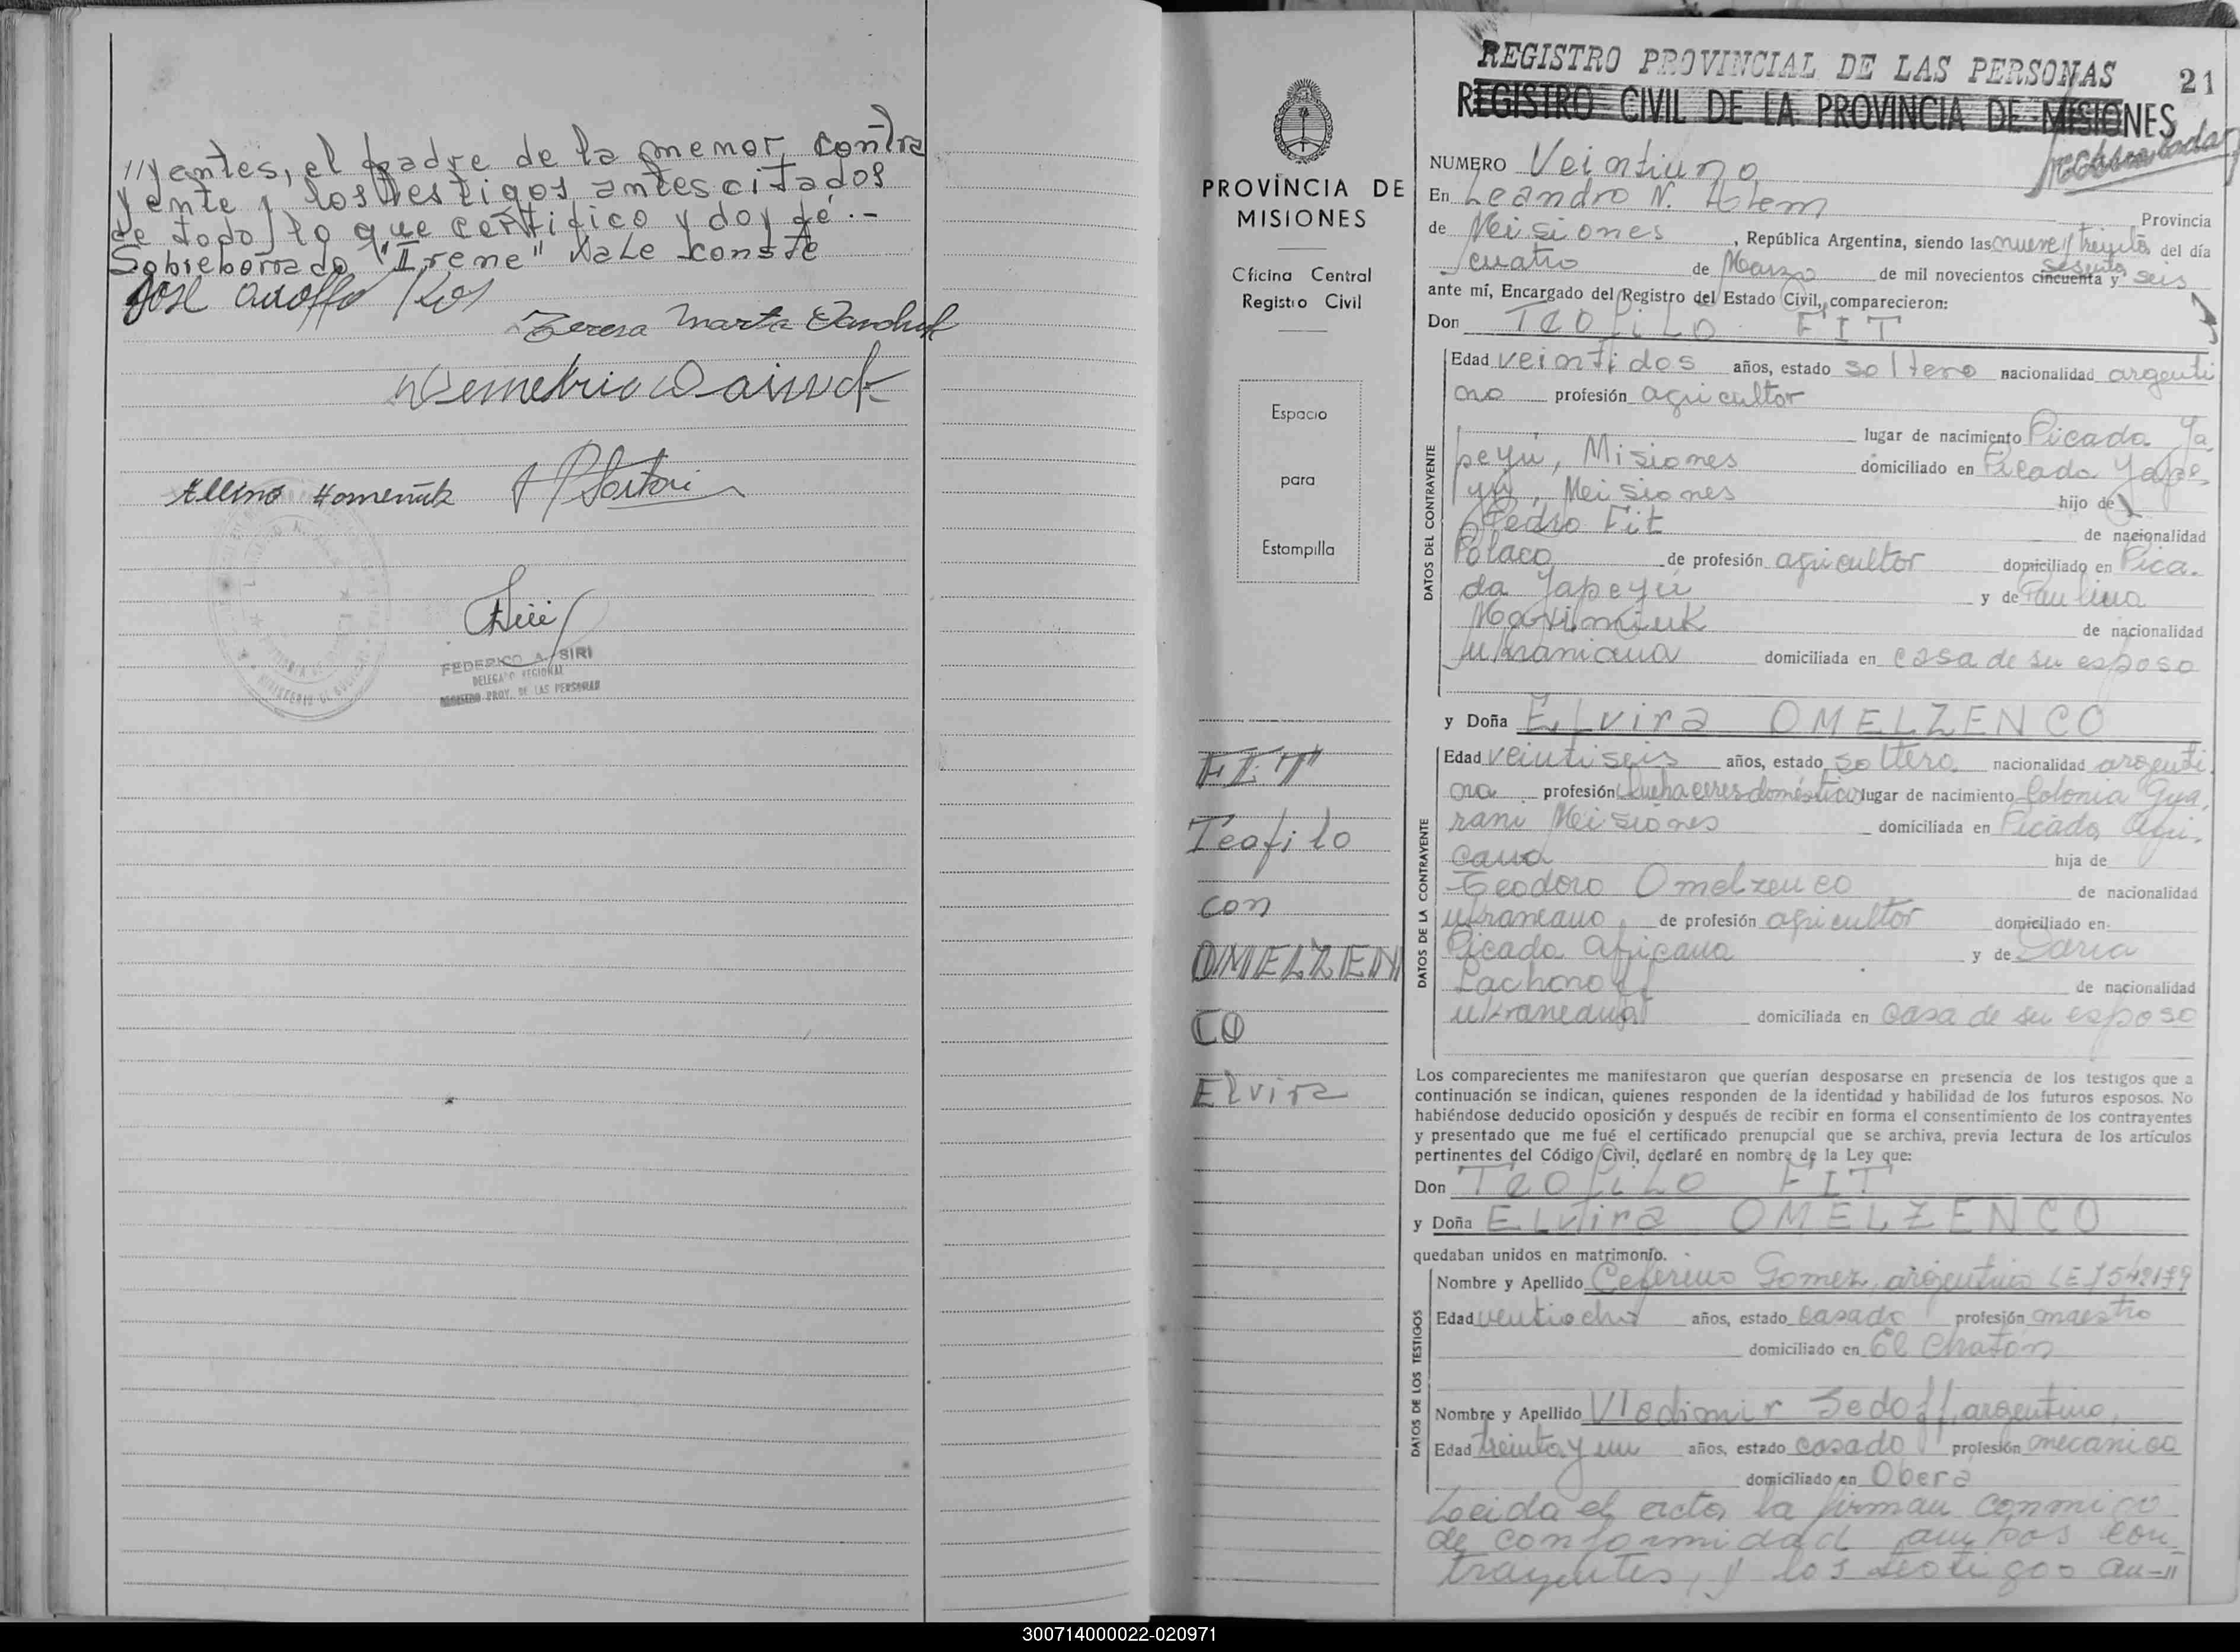 //yentes, el padre de la menor contra
yente y los testigos antes citados
de todo lo que certifico y doy fé.-
Sobreborrado "Irene" Vale conste
José Adolfo
Teresa Marta
Demetrio
Homeniuk
Sartori
FEDERICO A. SIRI
DELEGADO REGIONAL
REGISTRO PROV. DE LAS PERSONAS
PROVINCIA DE
MISIONES
Oficina Central
Registro Civil
Espacio
para
Estampilla
FIT
Teofilo
con
OMELZEN
CO
Elvira
REGISTRO PROVINCIAL DE LAS PERSONAS
21
REGISTRO CIVIL DE LA PROVINCIA DE MISIONES
NUMERO Veintiuno
En Leandro N. Alem
Provincia
de Misiones, República Argentina, siendo las nueve y treinta del día
cuatro de Marzo de mil novecientos cincuenta y sesenta seis
ante mí, Encargado del Registro del Estado Civil, comparecieron:
Don TEOfiLO FIT
DATOS DEL CONTRAYENTE
Edad veintidos años, estado soltero nacionalidad argenti
no profesión agricultor
lugar de nacimiento Picada Ya
peyú, Misiones domiciliado en Picada Yape-
yú, Misiones hijo de
Pedro Fit de nacionalidad
Polaco de profesión agricultor domiciliado en Pica-
da Yapeyú y de Paulina
Maximiuk de nacionalidad
ukraniana domiciliada en casa de su esposo
y Doña ELvira OMELZENCO
DATOS DE LA CONTRAYENTE
Edad veintiseis años, estado soltera nacionalidad argenti-
na profesión quehaceres domésticos lugar de nacimiento Colonia Gua-
raní Misiones domiciliada en Picada Afri-
cana hija de
Teodoro Omelzenco de nacionalidad
ukraneano de profesión agricultor domiciliado en
Picada Africana y de Daria
de nacionalidad
ukraneana domiciliada en casa de su esposo
Los comparecientes me manifestaron que querían desposarse en presencia de los testigos que a
continuación se indican, quienes responden de la identidad y habilidad de los futuros esposos. No
habiéndose deducido oposición y después de recibir en forma el consentimiento de los contrayentes
y presentado que me fué el certificado prenupcial que se archiva, previa lectura de los artículos
pertinentes del Código Civil, declaré en nombre de la Ley que:
Don TEOfiLO FIT
y Doña ELvira OMELZENCO
quedaban unidos en matrimonio.
DATOS DE LOS TESTIGOS
Nombre y Apellido Ceferino Gomez, argentino LE 7542179
Edad ventiocho años, estado casado profesión maestro
domiciliado en El Chatón
Nombre y Apellido Vladimir Sedoff, argentino,
Edad treinta y un años, estado casado profesión mecanico
domiciliado en Oberá
Leida el acta, la firman conmigo
de conformidad ambos con
trayentes, y los testigos an-//
300714000022-020971